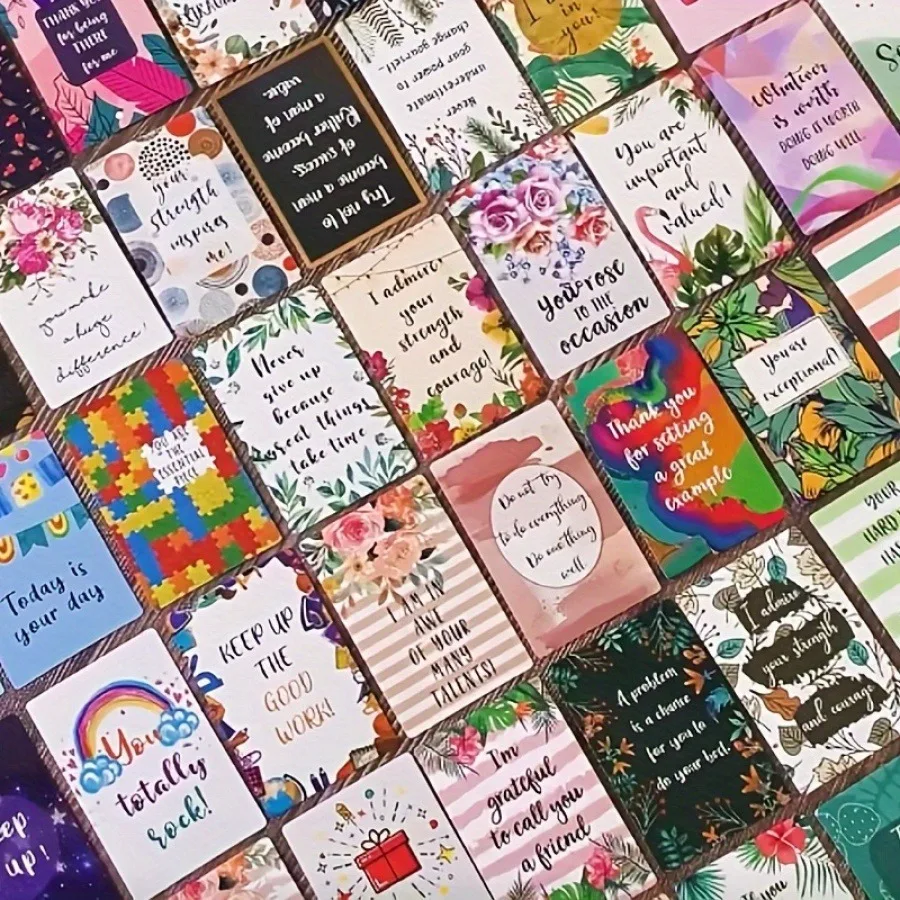 THANK YOU
for being
THERE
for me
I
in
you!
Whatever
is worth
DOING IS WORTH
DOING WELL.
your
strength
inspires
me!
Try not to
become a man
of success.
Rather become
a man of
value.
Never
underestimate
your power to
change yourself.
You are
important
and
valued!
you make
a huge
difference!
I admire
your
strength
and
courage!
You rose
TO THE
occasion
Never
give up
because
great things
take time
You are
exceptional!
YOU ARE
THE
ESSENTIAL
PIECE
Thank you
for setting
a great
example
Do not try
to do everything
Do one thing
well
Today is
your day
I AM IN
AWE
OF YOUR
MANY
TALENTS!
YOUR
HARD
HAS
KEEP UP
THE
GOOD
WORK!
I admire
your strength
and courage
A problem
is a chance
for you to
do your bed.
You
totally
rock!
I'm
grateful
to call you
a friend
up!
you